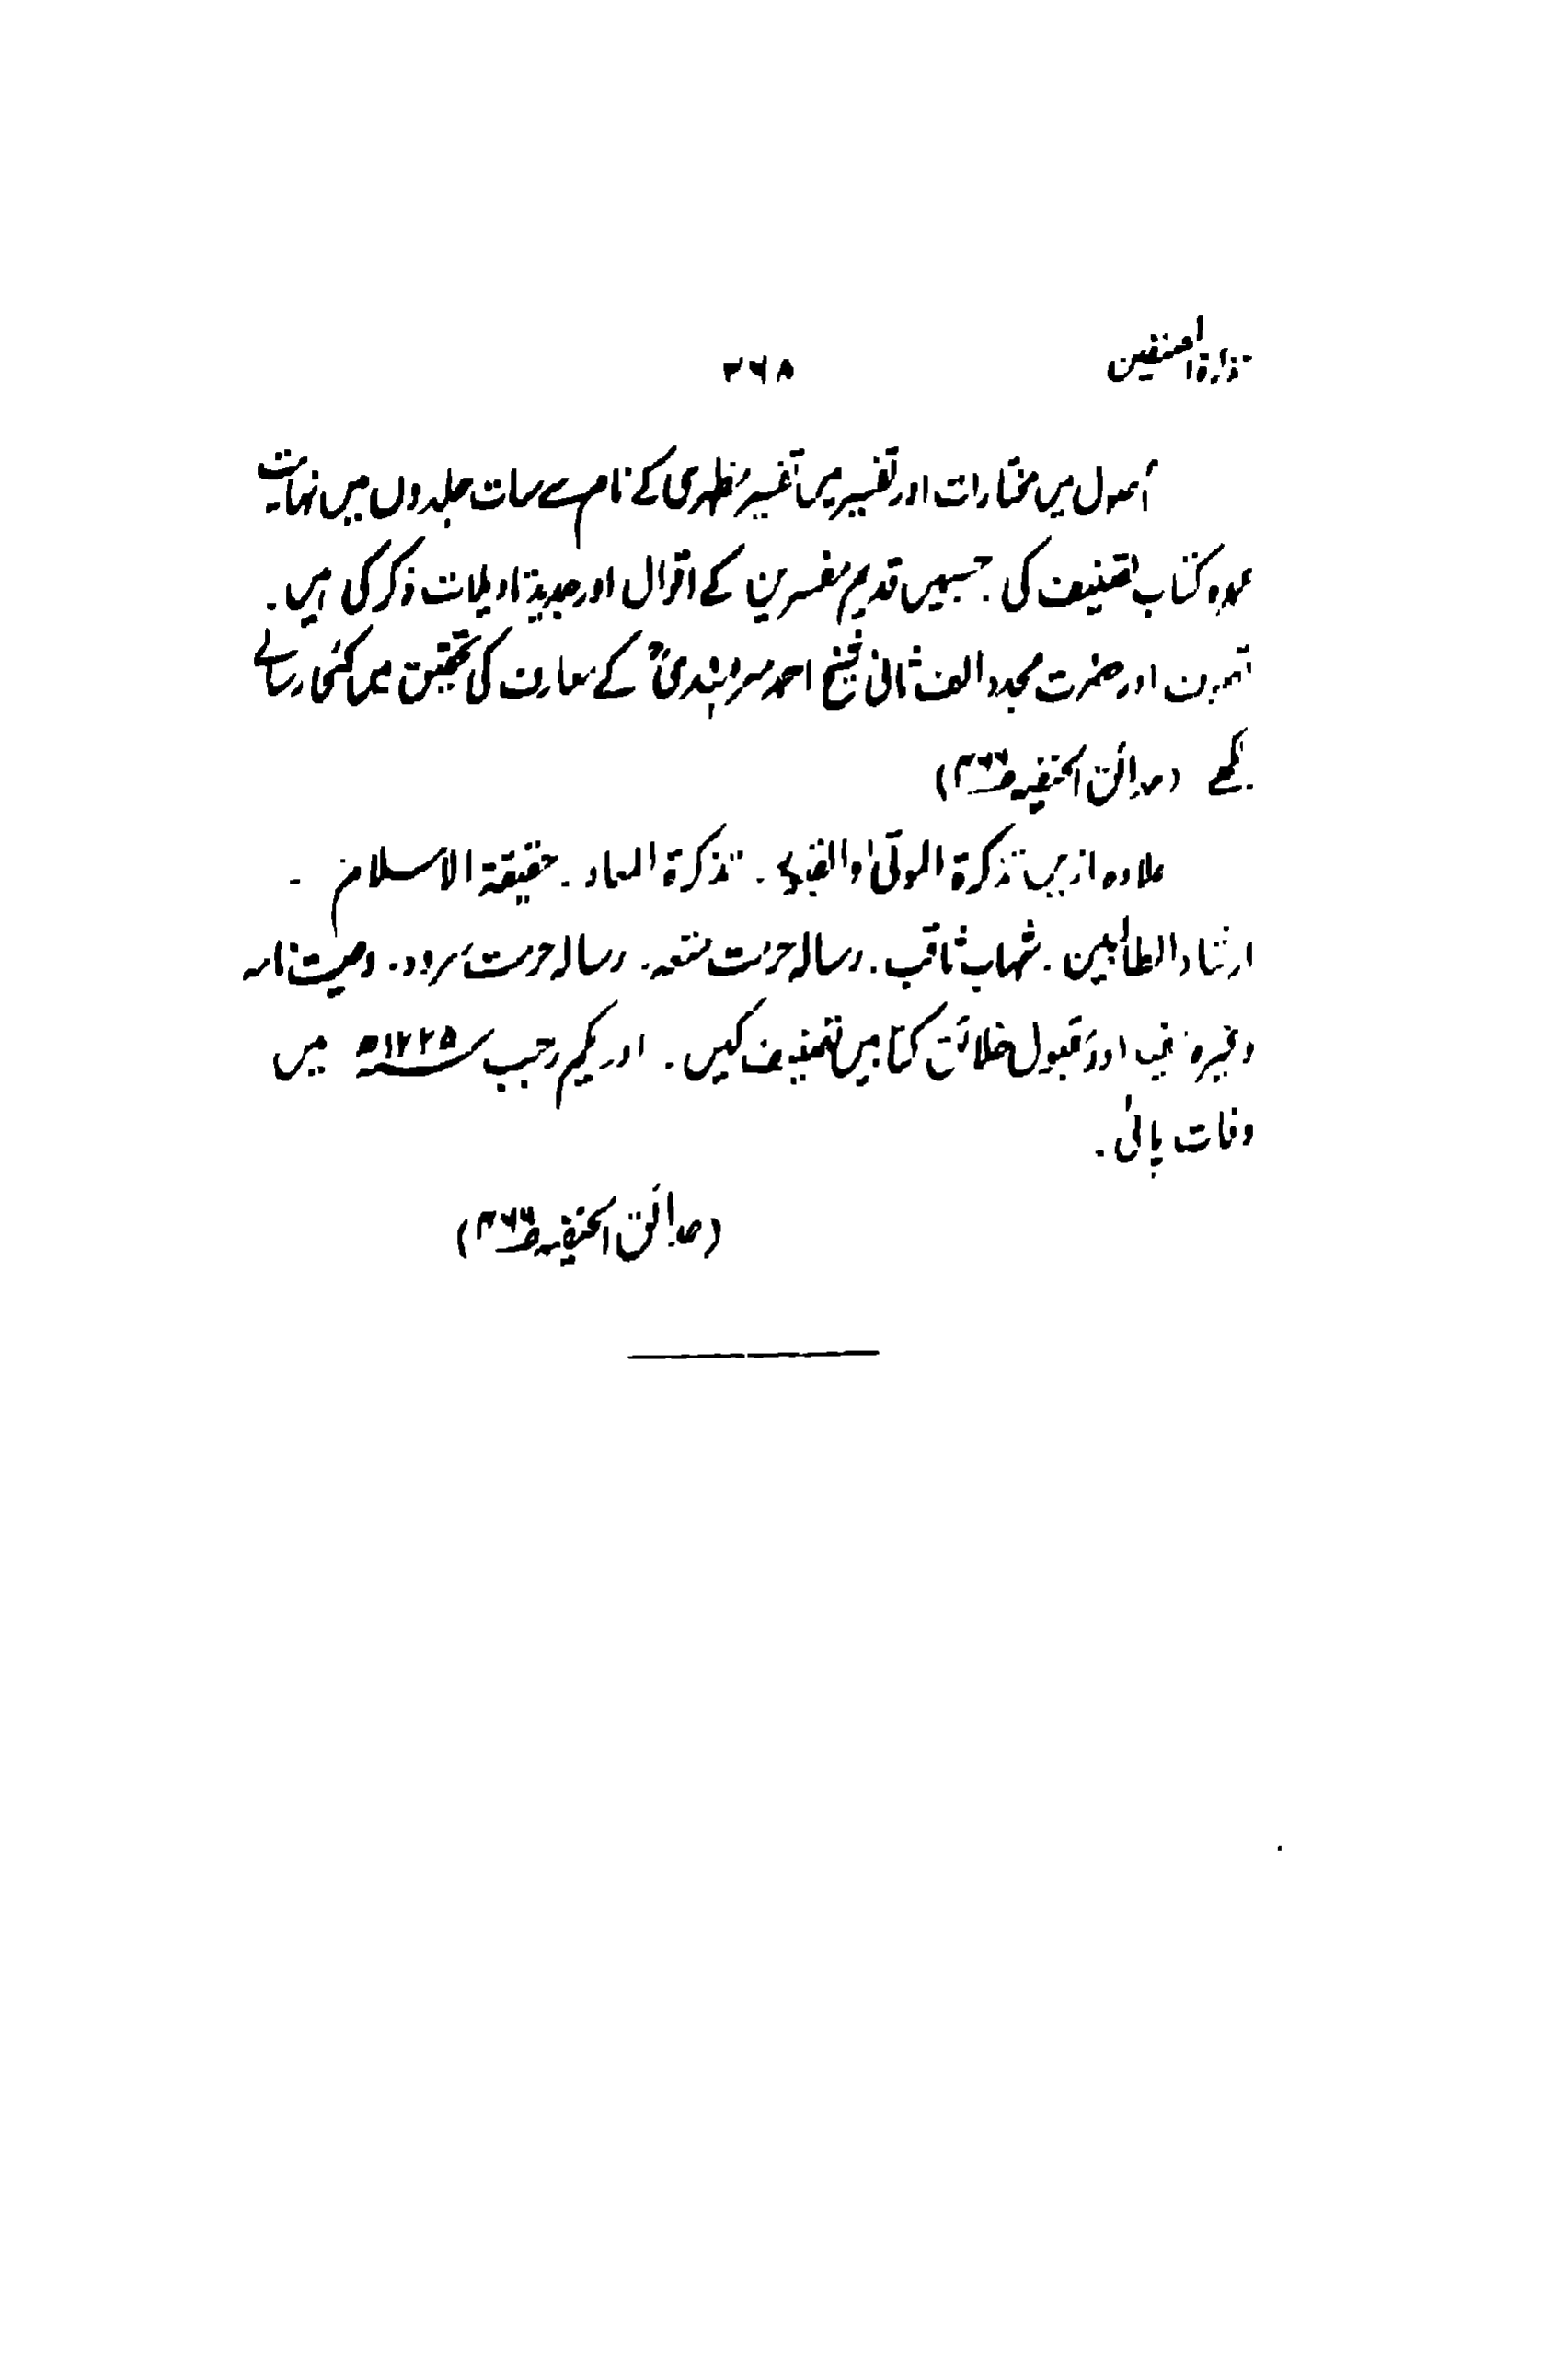 تذکرۃ المصنفین ۲۶۸
اصول میں مختارات اور تفسیر میں تفسیر مظہری کے نام سے سات جلدوں میں نہایت
عمدہ کتاب تصنیف کی جسمیں قدیم مفسرین کے اقوال اور جدید تاویلات ذکر کی ہیں۔
تصوف اور حضرت مجدد الف ثانی شیخ احمد سرہندیؒ کے معارف کی تحقیق میں کئی رسالے
لکھے (حدائق الحنفیہ ص۴۶۶)
علاوہ ازیں تذکرۃ الموتیٰ والقبور۔ تذکرۃ المعاد۔ حقیقۃ الاسلام۔
ارشاد الطالبین۔ شہاب ثاقب۔ رسالہ حرمت متعہ۔ رسالہ حرمت سرود۔ وصیت نامہ
وغیرہ مفید اور مقبول خلائق کتابیں تصنیف کیں۔ اور یکم رجب ۱۲۲۵ھ میں
وفات پائی۔
(حدائق الحنفیہ ص۴۶۶)